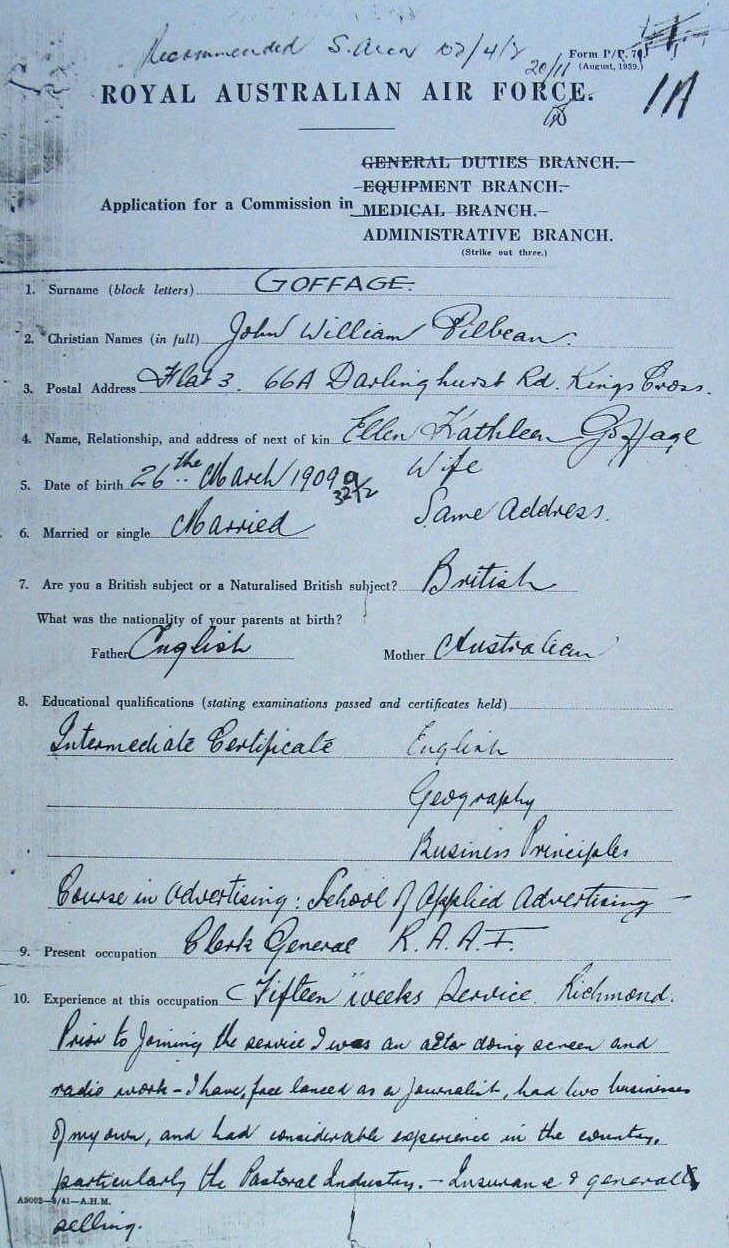 Recommended
Form P/P. 
(August, 1939.)
20/11
ROYAL AUSTRALIAN AIR FORCE.
1A
GENERAL DUTIES BRANCH.
EQUIPMENT BRANCH.
Application for a Commission in MEDICAL BRANCH.
ADMINISTRATIVE BRANCH.
(Strike out three.)
1. Surname (block letters) GOFFAGE.
2. Christian Names (in full) John William Pilbean.
3. Postal Address Flat 3. 66A Darlinghurst Rd. Kings Cross.
4. Name, Relationship, and address of next of kin Ellen Kathleen Goffage
Wife
5. Date of birth 26th March 1909
Same Address.
6. Married or single Married
7. Are you a British subject or a Naturalised British subject? British
What was the nationality of your parents at birth?
Father English Mother Australian
8. Educational qualifications (stating examinations passed and certificates held)
Intermediate Certificate English
Geography
Business Principles
Course in Advertising: School of Applied Advertising -
9. Present occupation Clerk General R.A.A.F.
10. Experience at this occupation Fifteen weeks Service. Richmond.
Prior to joining the service I was an actor doing screen and
radio work - I have free lanced as a journalist, had two businesses
of my own, and had considerable experience in the country,
particularly the Pastoral Industry. - Insurance & general
A8002—3/41—A.H.M.
selling.